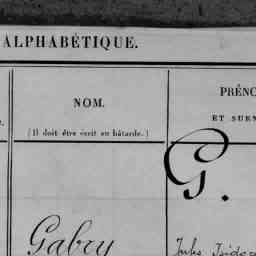 ALPHABÉTIQUE.
NOM.
(Il doit être écrit en bâtarde.)
PRÉNO
ET SURN
G.
Gabry
Jules Isidore